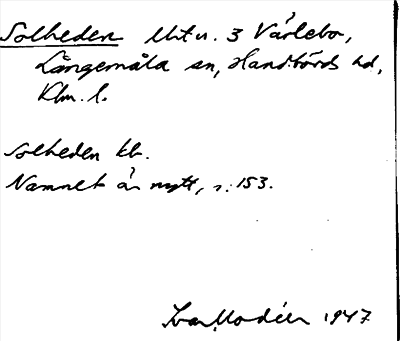 Solheden Utjr. 3 Värlebo,
Långemåla sn, Handbörds hd,
Klm. l.
Solheden kb.
Namnet är nytt, s. 153.
Ivar Modéer 1947